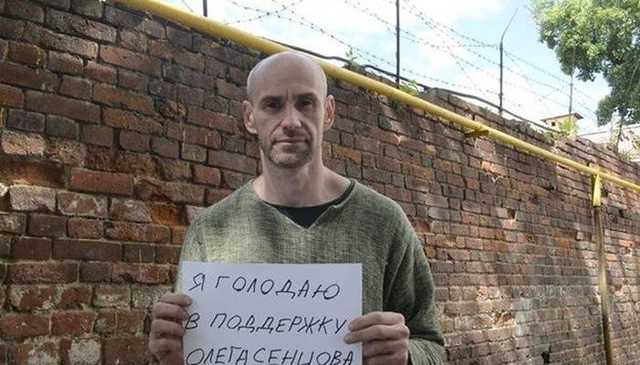 Я ГОЛОДАЮ
В ПОДДЕРЖКУ
ОЛЕГА СЕНЦОВА